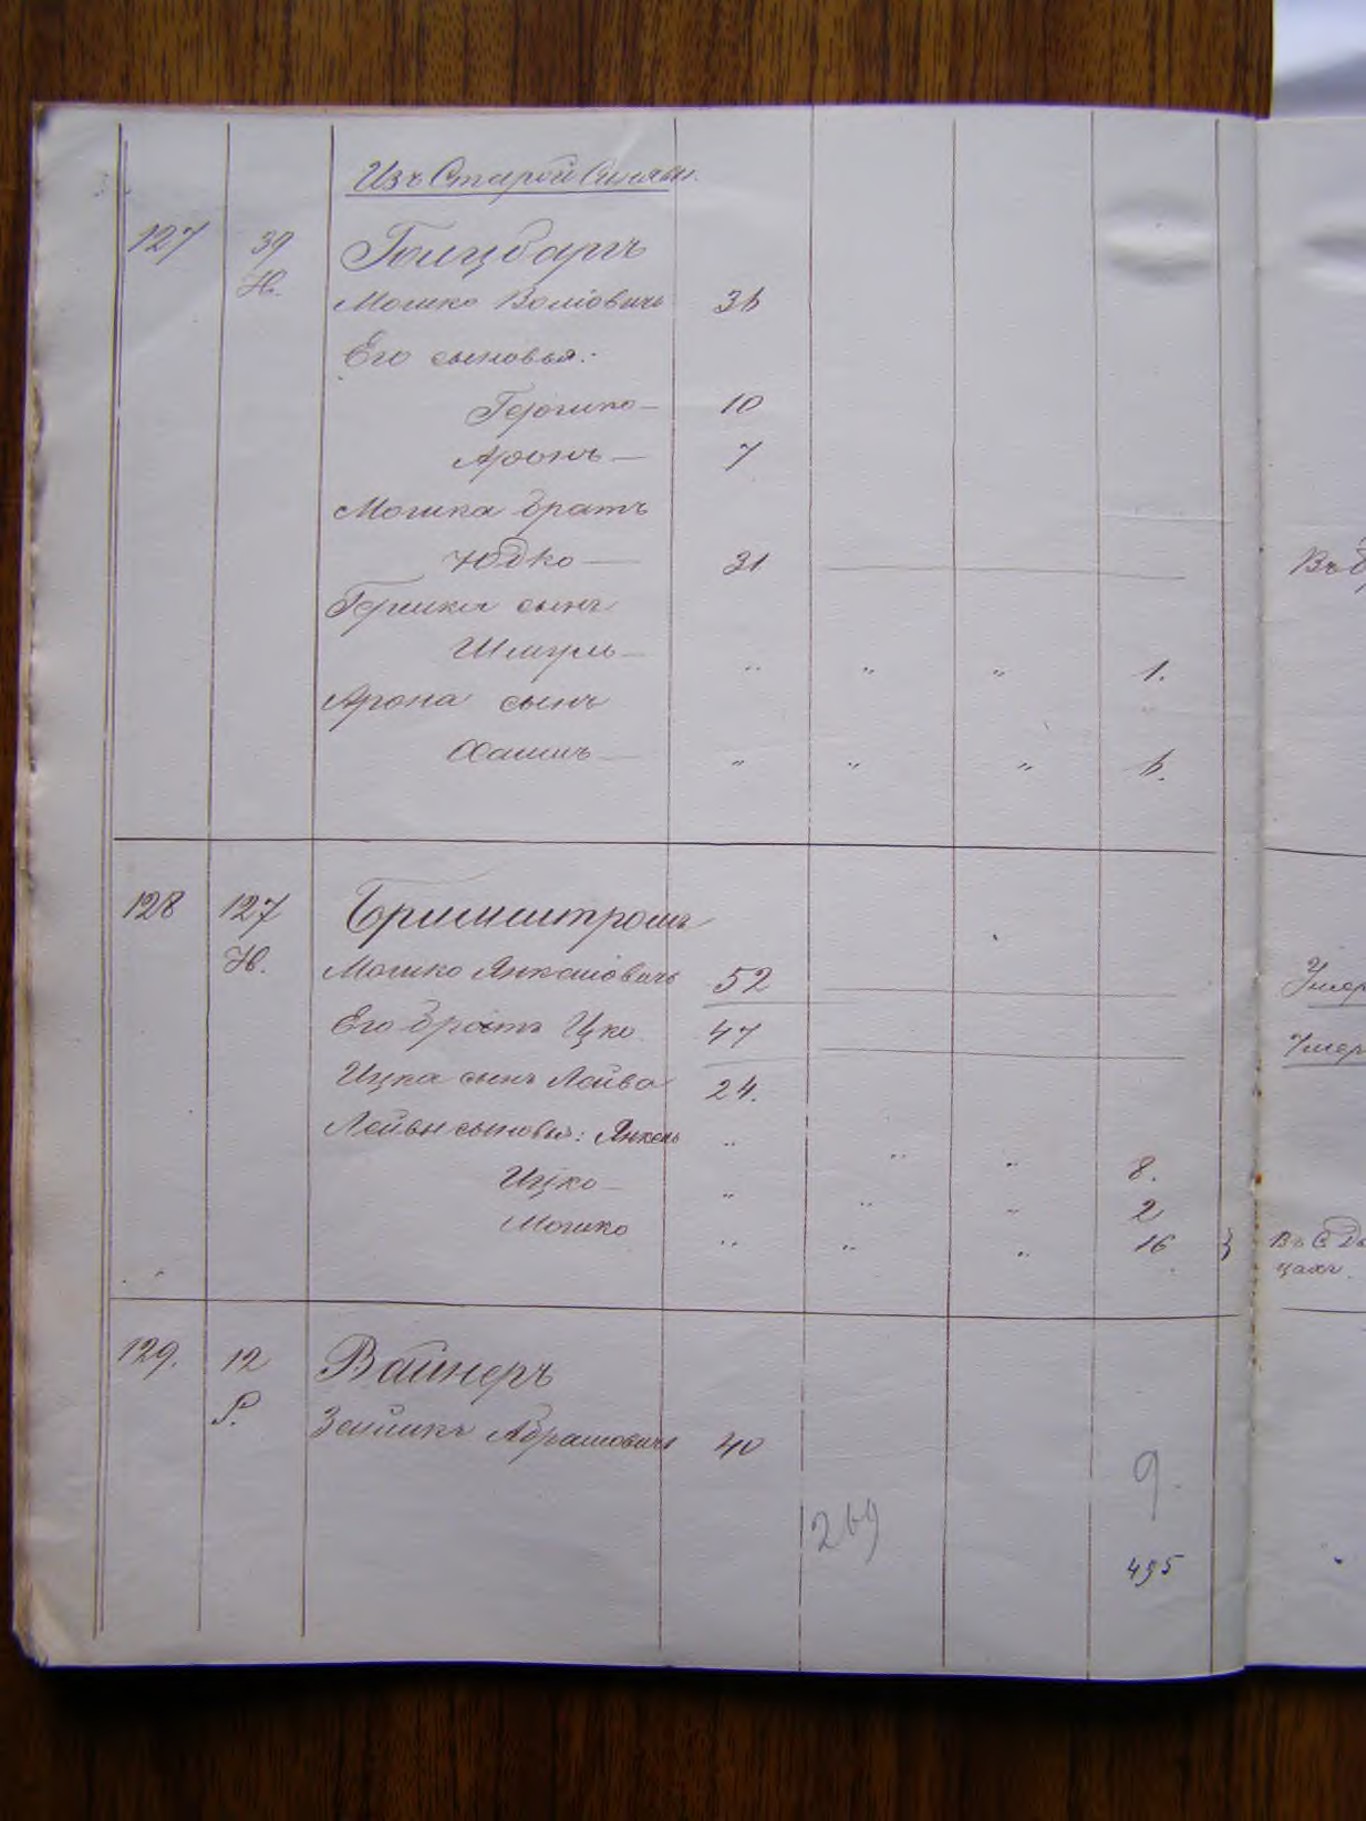 Изъ Старой Синявы.
127 39 Голцбаргъ
Н.
Мошко Волiовичъ 36
Его сыновья:
Гершко — 10
Аронъ — 7
Мошка братъ
Юдко — 31
Гершка сынъ
Шмуль — " " " 1.
Арона сынъ
Хаимъ — " " " 6.
128 127
Н. Мошко Янкелiовичъ 52
Его братъ Цко 47
Ицка сынъ Лейба 24.
Лейбы сыновья: Янкель " " " 8.
Ицко — " " " 2
Мошко " " " 16 }
129. 12 Вайнеръ
Р. Зейликъ Абрамовичъ 40
9.
269
495
Въ
Умер
Умер
Въ С
цахъ.